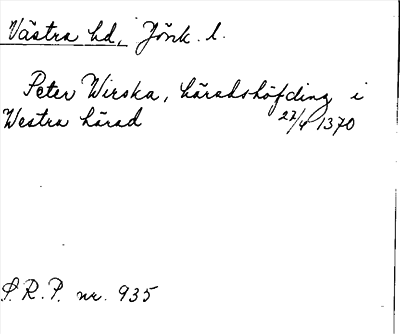 Västra hd, Jönk. l.
Peter Wirska, häradshöfding i
Westra härad 27/4 1370
S.R.P. nr. 935